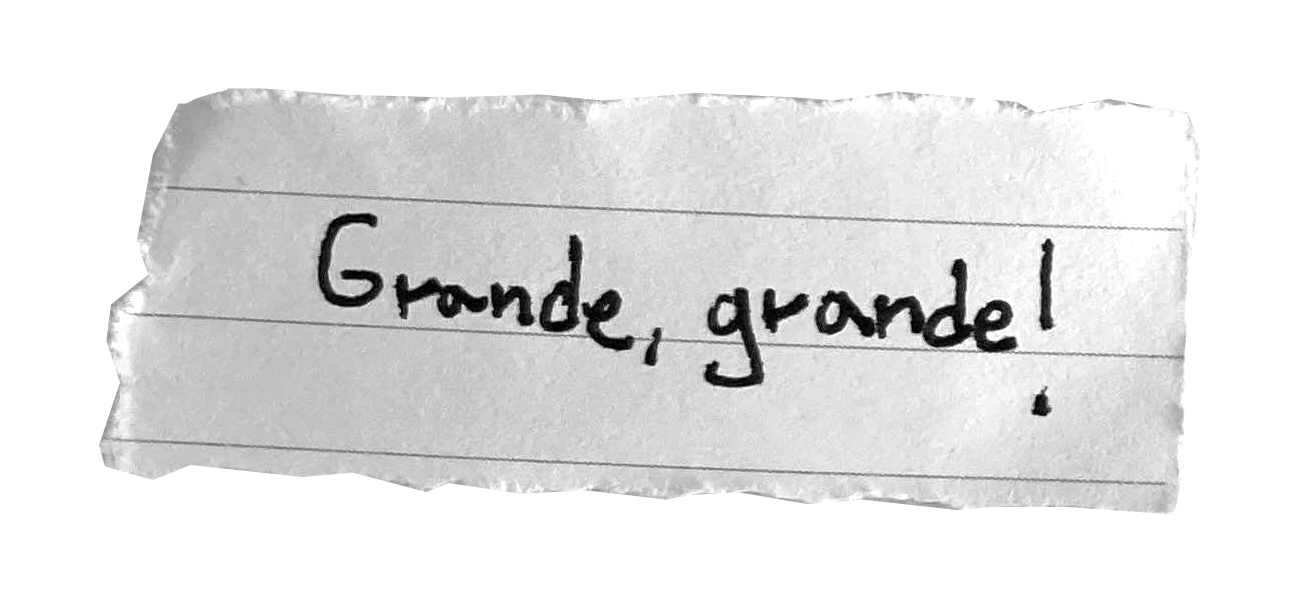 Grande, grande!